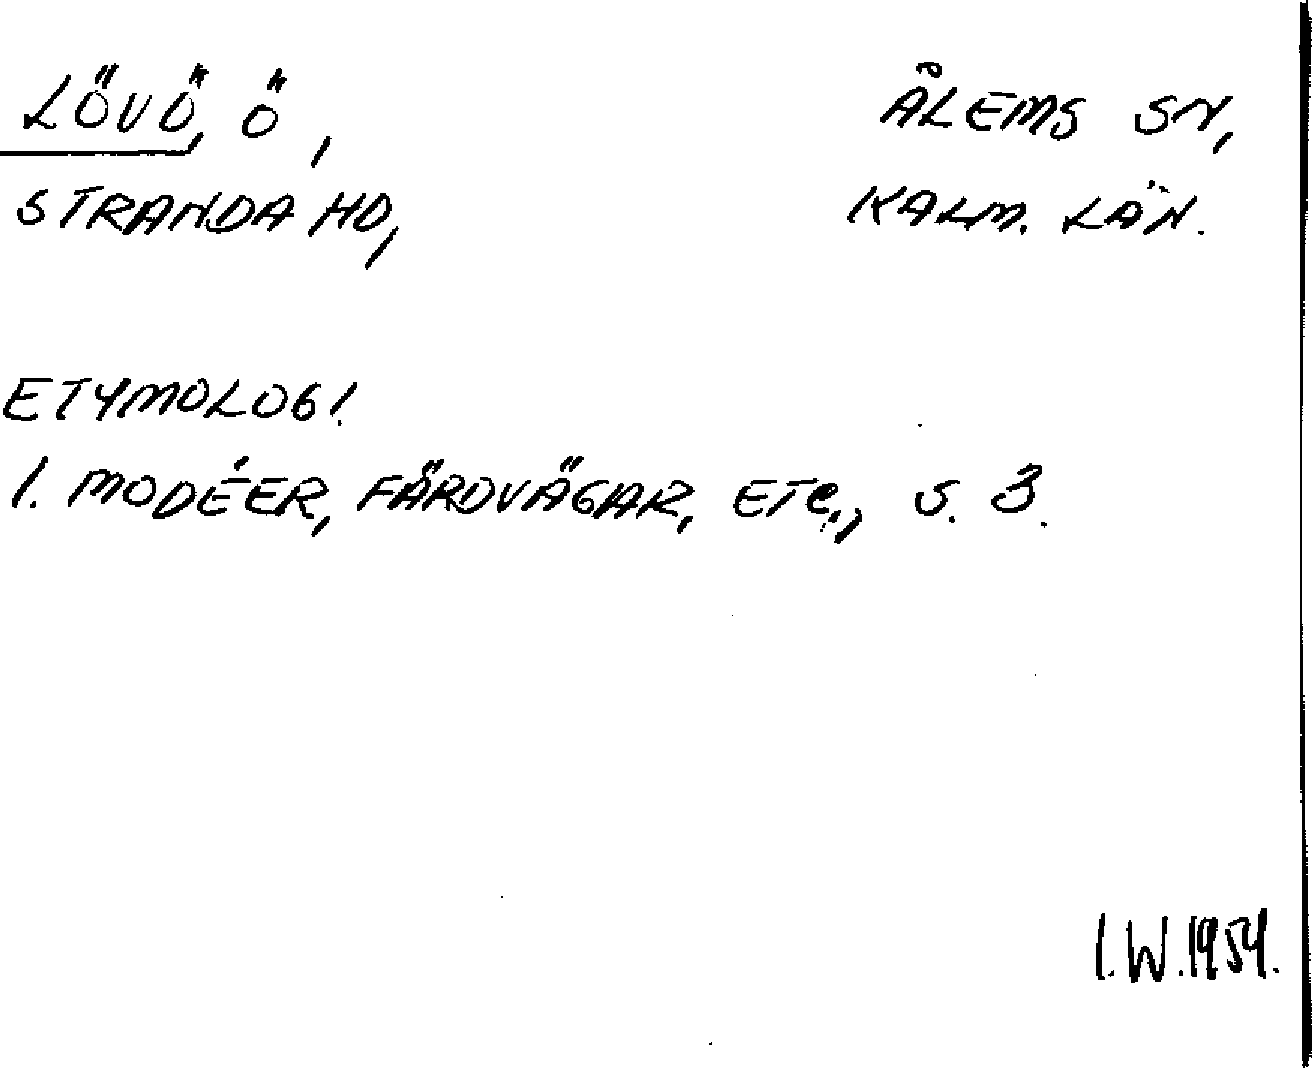 LÖVÖ, Ö, ÅLEMS SN,
STRANDA HD, KALM. LÄN.
ETYMOLOGI.
1. MODÉER, FÄRDVÄGAR, ETC., S. 3.
I.W.1954.